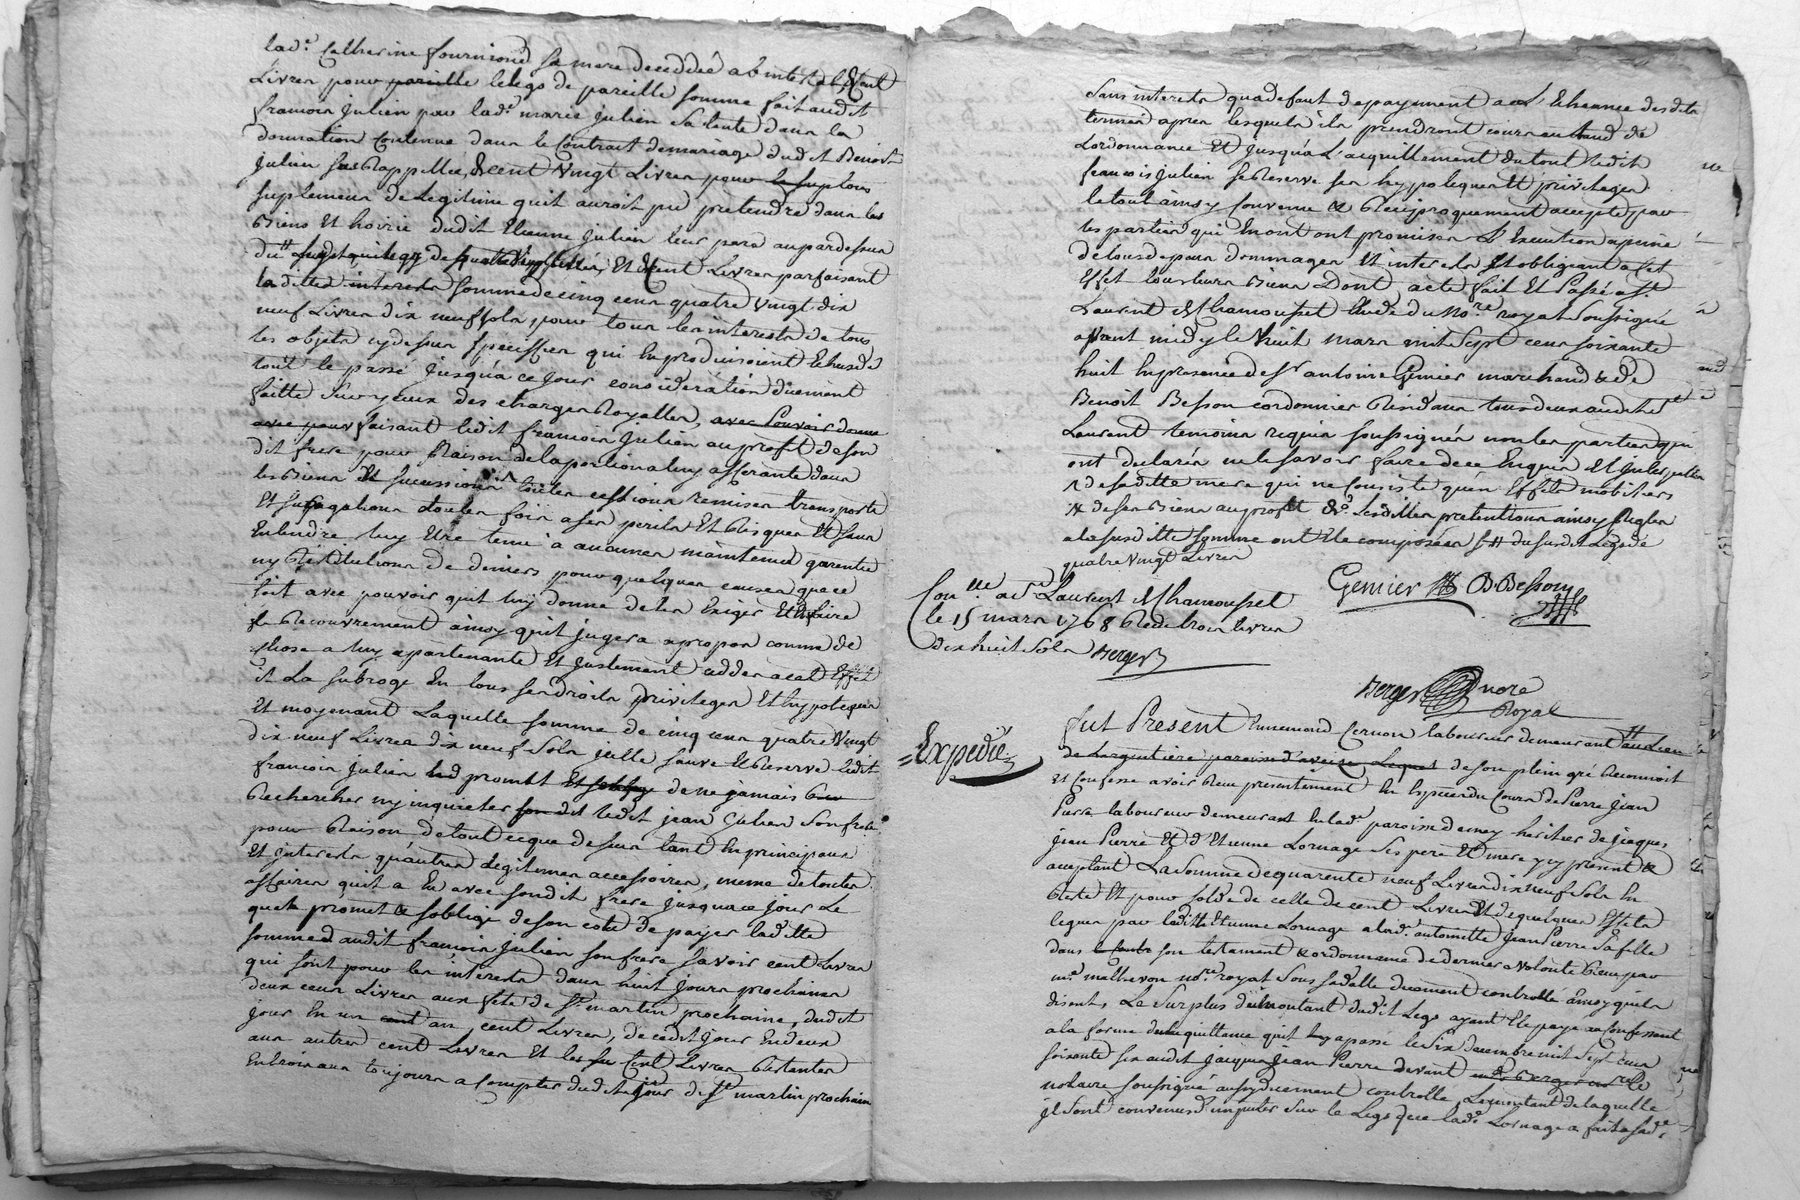 lad.e Catherine fournioud sa mere deceddée ab intestat cent
Livres pour pareille le legs de pareille somme fait audit
francois Julien par lad.e marie Julien sa tente dans la
donnation Contenue dans le Contrat de mariage dudit Benoit
Julien sus Rappellée, cent vingt Livres pour le suplem
suplement de Legitime quil auroit pu pretendre dans les
Biens Et hoirie dudit Etienne Julien leur pere au pardessus
du et cent Livres parfaisant
la ditte somme de cinq cens quatre vingt dix
neuf Livres dix neuf sols, pour tous les interests de tous
les objets cy dessus qui En produisoient Echus de
tout le passé jusqu'a ce jour consideration duement
faitte sur yceux des charges Royalles, avec Pouvoir donne
avec pouv faisant ledit francois Julien au profit de son
dit frere pour Raison de la portion a luy afferante dans
les Biens Et sucession toutes cessions remises transports
Et subrogations toutes fois a ses perils Et Risques Et sans
Entendre luy Etre tenu à aucunes maintenüe garentie
ny Restitutions de deniers pour quelques causes que ce
soit avec pouvoir quil luy donne de les Exiger Et faire
le Recouvrement ainsy quil jugera apropos comme de
chose a luy apartenante Et justement adder a cet Effet
il La subroge En tous ses droits privileges Et hypoteques
Et moyenant Laquelle somme de cinq cens quatre vingt
dix neuf Livres dix neuf sols jcelle sauve Et Reservé ledit
francois Julien promet Et de ne jamais
Rechercher ny inquieter ledit jean Julien son frere
pour Raison de tout ce que dessus tant En principaux
Et interests qu'autres legitimes accessoires, meme de toutes
affaires quil a Eu avec sondit frere jusqua ce jour Le
quel promet & soblige de son coté De payer laditte
somme audit francois Julien son frere savoir cent Livres
qui sont pour les interests dans huit jours prochains
deux cens Livres aux fete de St martin prochaine, dudit
jour En un cent an, cent Livres, de cedit jour En deux
ans autres cent Livres Et les cent Livres Restantes
En trois ans toujours a compter dudit jour de St martin prochain
sans interests qu'a defaut de payement a L'Echeance des dits
termes apres lesquels ils prendront cours au taud de
Lordonnance Et jusqu'a L'acquittement du tout ledit
francois Julien se Reserve ses hypoteques Et privileges
le tout ainsy convenu & Reciproquement accepté par
les parties qui En ont ont promis L'Execution a peine
de tous depens dommages Et interests Et obligeant a cet
Effet tous leurs Biens Dont acte fait Et Passé a St
Laurent de Chamousset Etude du No.re royal soussigné
avant midy le huit mars mil sept cens soixante
huit En presence de Sr antoine Genier marchand & de
Benoit Besson cordonnier Residans tous deux audit St
Laurent temoins requis soussignés non les parties qui
ont declarés ne le savoir faire de ce Enquis Et interpellés
de saditte mere qui ne consiste qu'en Effets mobiliers
& de ses Biens au profit &.a Lesdittes pretentions ainsy Regles
a la susditte somme ont Ete composées du susdit Legs de
quatre vingt Livres
Genier B Besson
Con.lle a St Laurent de Chamousset
le 15 mars 1768 Reçu trois livres
dix huit sols Berger
Berger nore
Royal
=Expedié
fut Present Ennemond Cernon laboureur demeurant au Lieu
de Largentiere paroisse d'aveize Lequel de son plein gré Reconnoit
Et confesse avoir Recu presentement En Especes du Cours de Pierre Jean
Pierre laboureur demeurant En lad.e paroisse demay heritier de jacques
jean Pierre Et d'Etiennne Lornage ses pere Et mere y cy present &
acceptant La somme de quarente neuf Livres dix neuf sols En
Reste Et pour solde de celle de cent Livres Et de quelques Effets
legués par laditte Etienne Lornage a lad.e antoinette Jean Pierre sa fille
dans son testament & ordonnance de derniere Volonté Recu par
m.e malhevon no.re royal sous sa datte duement controllé ainsy quils
disent, Le surplus du montant dudit Legs ayant Eté payé au confessant
a la forme de la quittance quil a passé le six decembre mil sept cens
soixante six audit jacques jean Pierre devant le
notaire soussigné aussy duement controllé, Le montant de laquelle
jl sont convenus d'imputer sur le Legs que lad.e Lornage a fait a sad.e